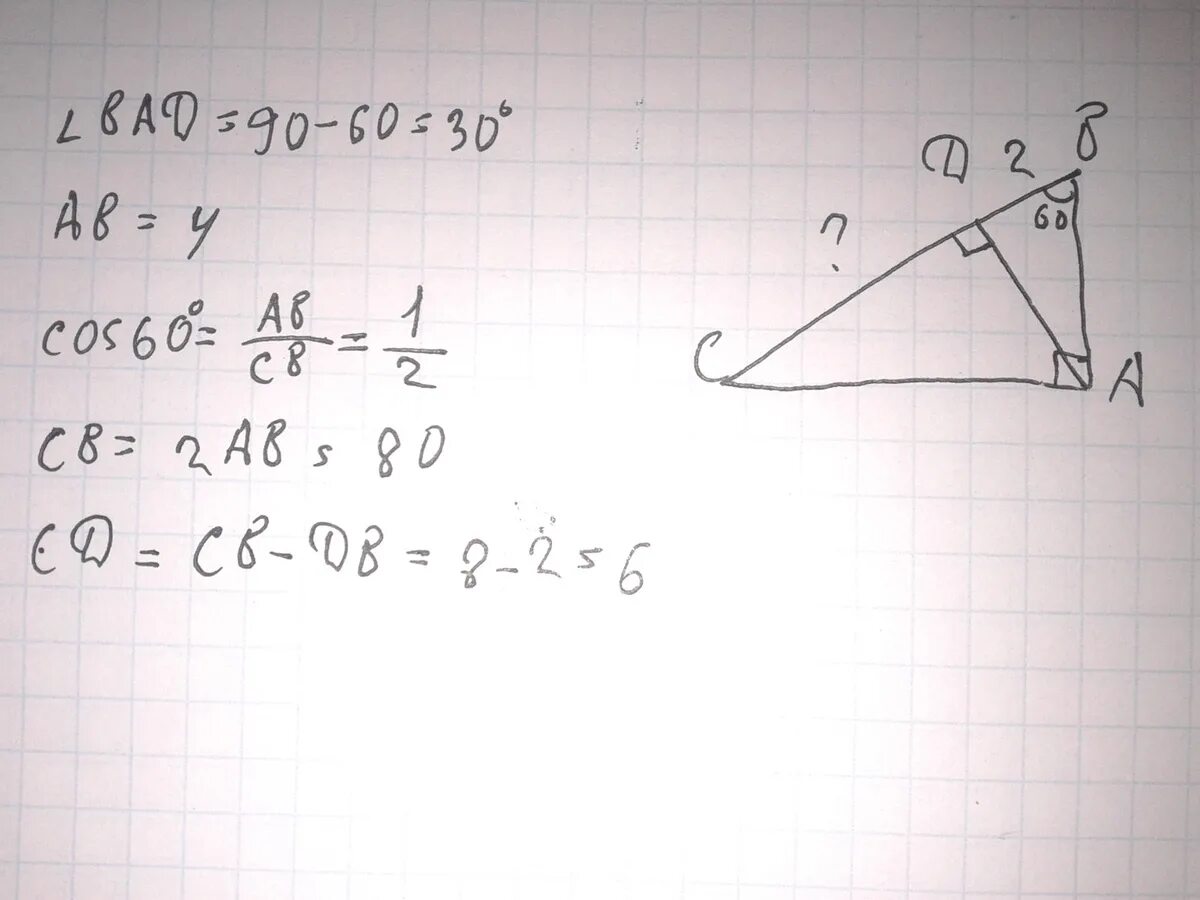 ∠BAD = 90 - 60 = 30°
AB = 4
cos60° = AB/CB = 1/2
CB = 2AB = 80
CD = CB - DB = 8 - 2 = 6
D 2 B
60
?
C
A